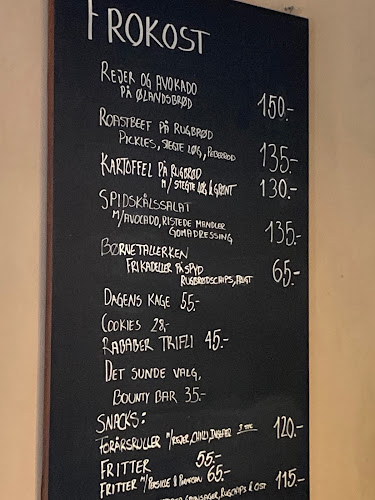 FROKOST
REJER OG AVOKADO
PÅ ØLANDSBRØD 150.-
ROASTBEEF PÅ RUGBRØD
PICKLES, STEGTE LØG, PEBERROD 135.-
KARTOFFEL PÅ RUGBRØD
M/ STEGTE LØG & GRØNT 130.-
SPIDSKÅLSSALAT
M/AVOCADO, RISTEDE MANDLER
GOMADRESSING 135.-
BØRNETALLERKEN
FRIKADELLER PÅ SPYD 65.-
RUGBRØDSCHIPS, FRUGT
DAGENS KAGE 55.-
COOKIES 28,-
RABABER TRIFLI 45.-
DET SUNDE VALG,
BOUNTY BAR 35.-
SNACKS:
FORÅRSRULLER M/REJER, CHILI, INGEFÆR 3 STK 120.-
FRITTER 55.-
FRITTER M/PERSILLE & PARMESAN 65.-
& OST 115.-